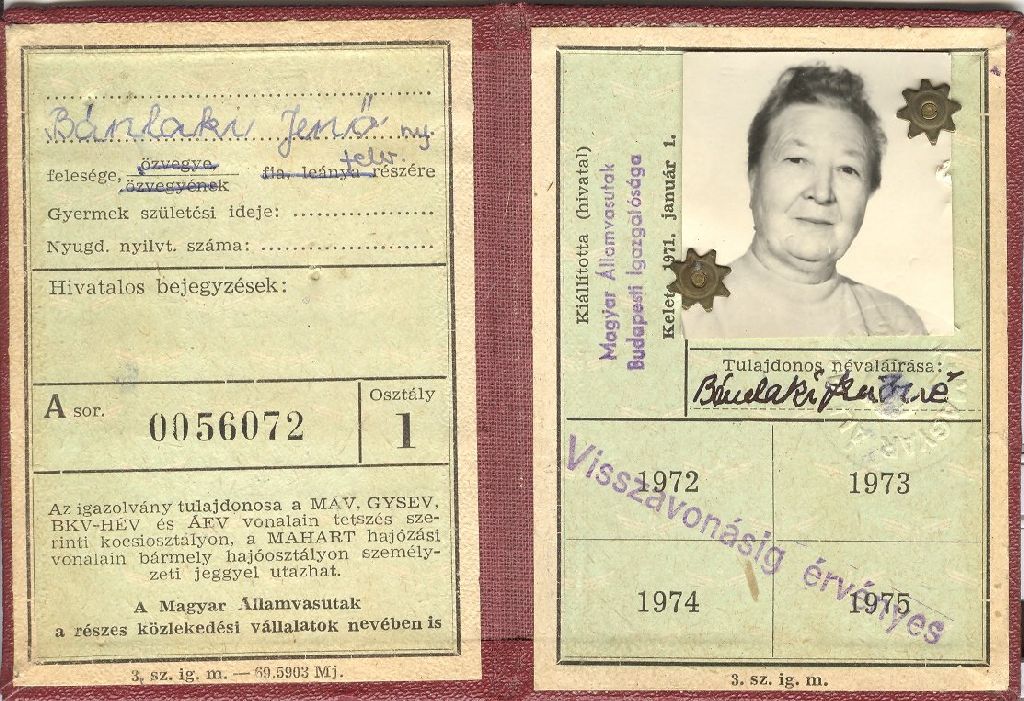 Bánlaki Jenő ny.
felv.
felesége, özvegye
özvegyének fia, leánya részére
Gyermek születési ideje:
Nyugd. nyilvt. száma:
Hivatalos bejegyzések:
A sor. 0056072
Osztály
1
Az igazolvány tulajdonosa a MÁV, GYSEV,
BKV-HÉV és ÁEV vonalain tetszés sze-
rinti kocsiosztályon, a MAHART hajózási
vonalain bármely hajóosztályon személy-
zeti jeggyel utazhat.
A Magyar Államvasutak
a részes közlekedési vállalatok nevében is
3. sz. ig. m. — 69.5903 Mj.
Kiállította (hivatal)
Magyar Államvasutak
Budapesti Igazgatósága
Kelet 1971. január 1.
Tulajdonos névaláírása:
Bánlaki Jenőné
1972
1973
Visszavonásig érvényes
1974
1975
3. sz. ig. m.